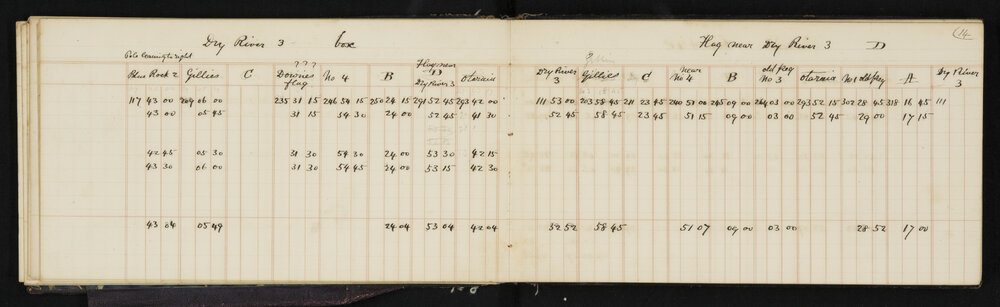 14
Dry River 3 box
Pole leaning to right
Blue Rock 2 Gillies C ??? Downes flag No 4 B Flag near D Dry River 3 Otaraia
117 43 00 209 06 00 235 31 15 246 54 15 250 24 15 291 52 45 293 42 00
43 00 05 45 31 15 54 30 24 00 52 45 41 30
42 45 05 30 31 30 54 30 24 00 53 30 42 15
43 30 06 00 31 30 54 45 24 00 53 15 42 30
43 04 05 49 24 04 53 04 42 04
Flag near Dry River 3 D
Dry River 3 Gillies C near No 4 B old flag No 3 Otaraia No 1 old flag A Dry River 3
111 53 00 203 58 45 211 23 45 240 51 00 245 09 00 264 03 00 293 52 15 302 28 45 318 16 45 111
52 45 58 45 23 45 51 15 09 00 03 00 52 45 29 00 17 15
52 52 58 45 51 07 09 00 03 00 28 52 17 00